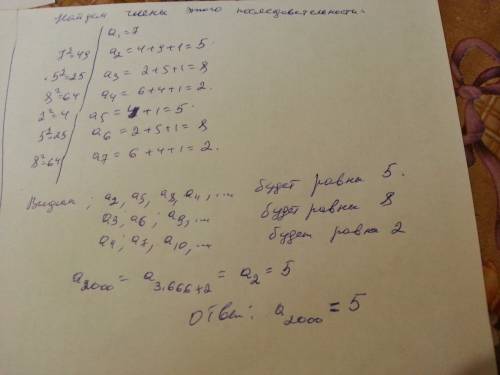 Найдем члены этого последовательности.
a₁=7
7²=49 a₂=4+9+1=5.
5²=25 a₃=2+5+1=8
8²=64 a₄=6+4+1=2.
2²=4 a₅=4+1=5.
5²=25 a₆=2+5+1=8
8²=64 a₇=6+4+1=2.
Видим; a₂, a₅, a₈, a₁₁, ... будет равны 5.
a₃, a₆; a₉, ... будет равны 8
a₄; a₇, a₁₀, ... будет равна 2
a₂₀₀₀ = a₃.₆₆₆₊₂ = a₂ = 5
Ответ: a₂₀₀₀ = 5